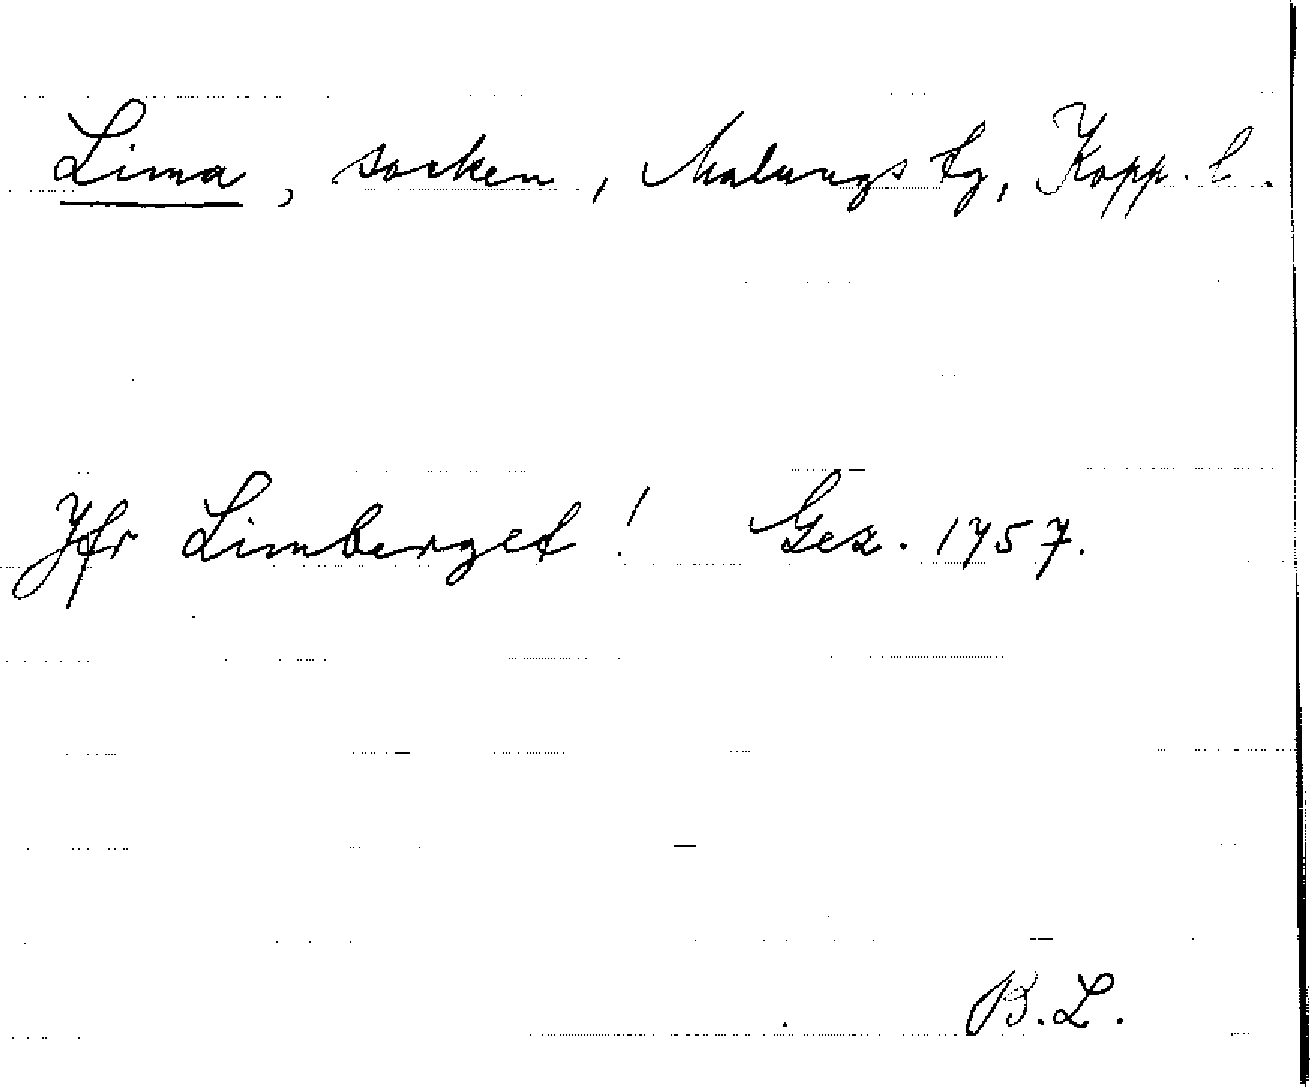 Lima, socken, Malungs tg, Kopp. l.
Jfr Limberget! Ges. 1757.
B.L.